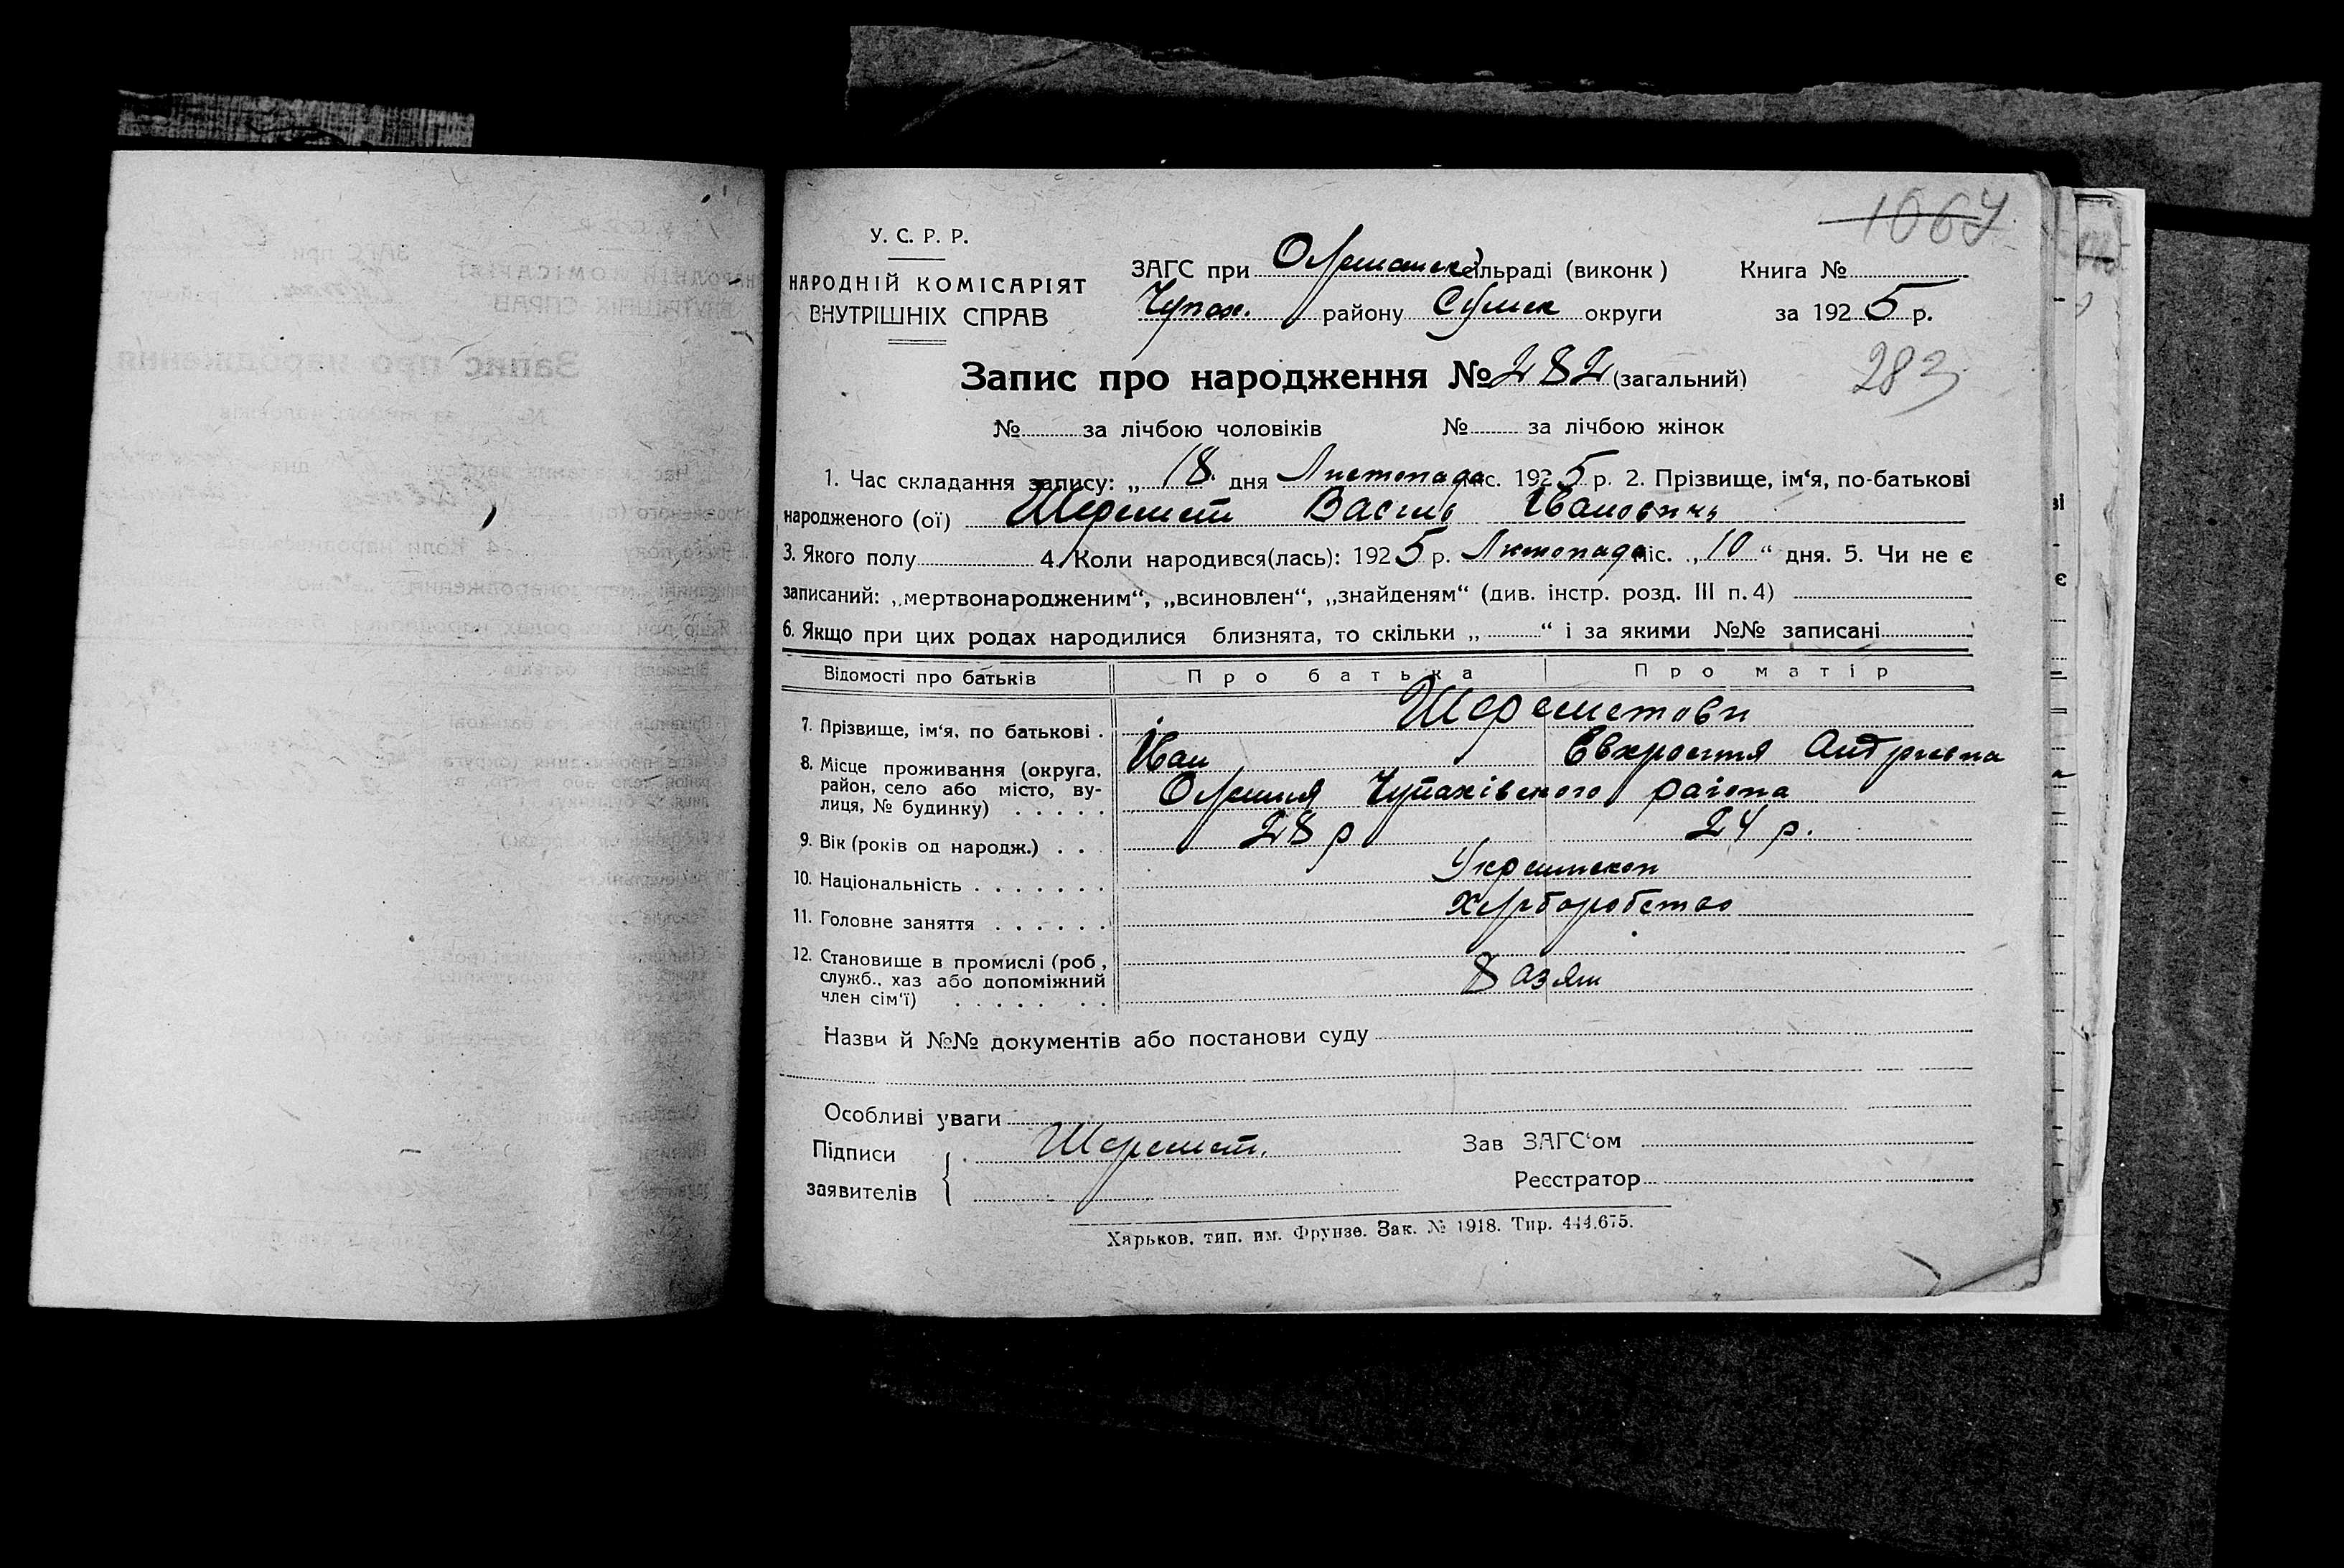 1067
У. С. Р. Р.
НАРОДНІЙ КОМІСАРІЯТ
ВНУТРІШНІХ СПРАВ
ЗАГС при Олешанск сільраді (виконк) Книга №
Чупах. району Сумск округи за 1925 р.
Запис про народження № 282 (загальний) 283
№ за лічбою чоловіків № за лічбою жінок
1. Час складання запису: „18" дня Листопада міс. 1925 р. 2. Прізвище, ім'я, по-батькові
народженого (ої) Шеремет Василь Іванович
3. Якого полу 4. Коли народився(лась): 1925 р. Листопада міс. „10" дня. 5. Чи не є
записаний: „мертвонародженим", „всиновлен", „знайденям" (див. інстр. розд. III п. 4)
6. Якщо при цих родах народилися близнята, то скільки „ " і за якими №№ записані
Відомості про батьків Про батька Про матір
7. Прізвище, ім'я, по батькові . Шереметови
Іван Євхросиния Андріевна
8. Місце проживання (округа, район, село або місто, вулиця, № будинку) . . . . . Олешня Чупахівського района
9. Вік (років од народж.) . . . 28 р 24 р.
10. Національність . . . . . . .
11. Головне заняття . . . . . . Хлрборобство
12. Становище в промислі (роб., служб., хаз або допоміжний член сім'ї) . . . . . . .
Назви й №№ документів або постанови суду
Особливі уваги
Підписи Шеремет. Зав ЗАГС'ом
заявителів Реєстратор
Харьков, тип. им. Фрунзе. Зак. № 1918. Тир. 444.675.